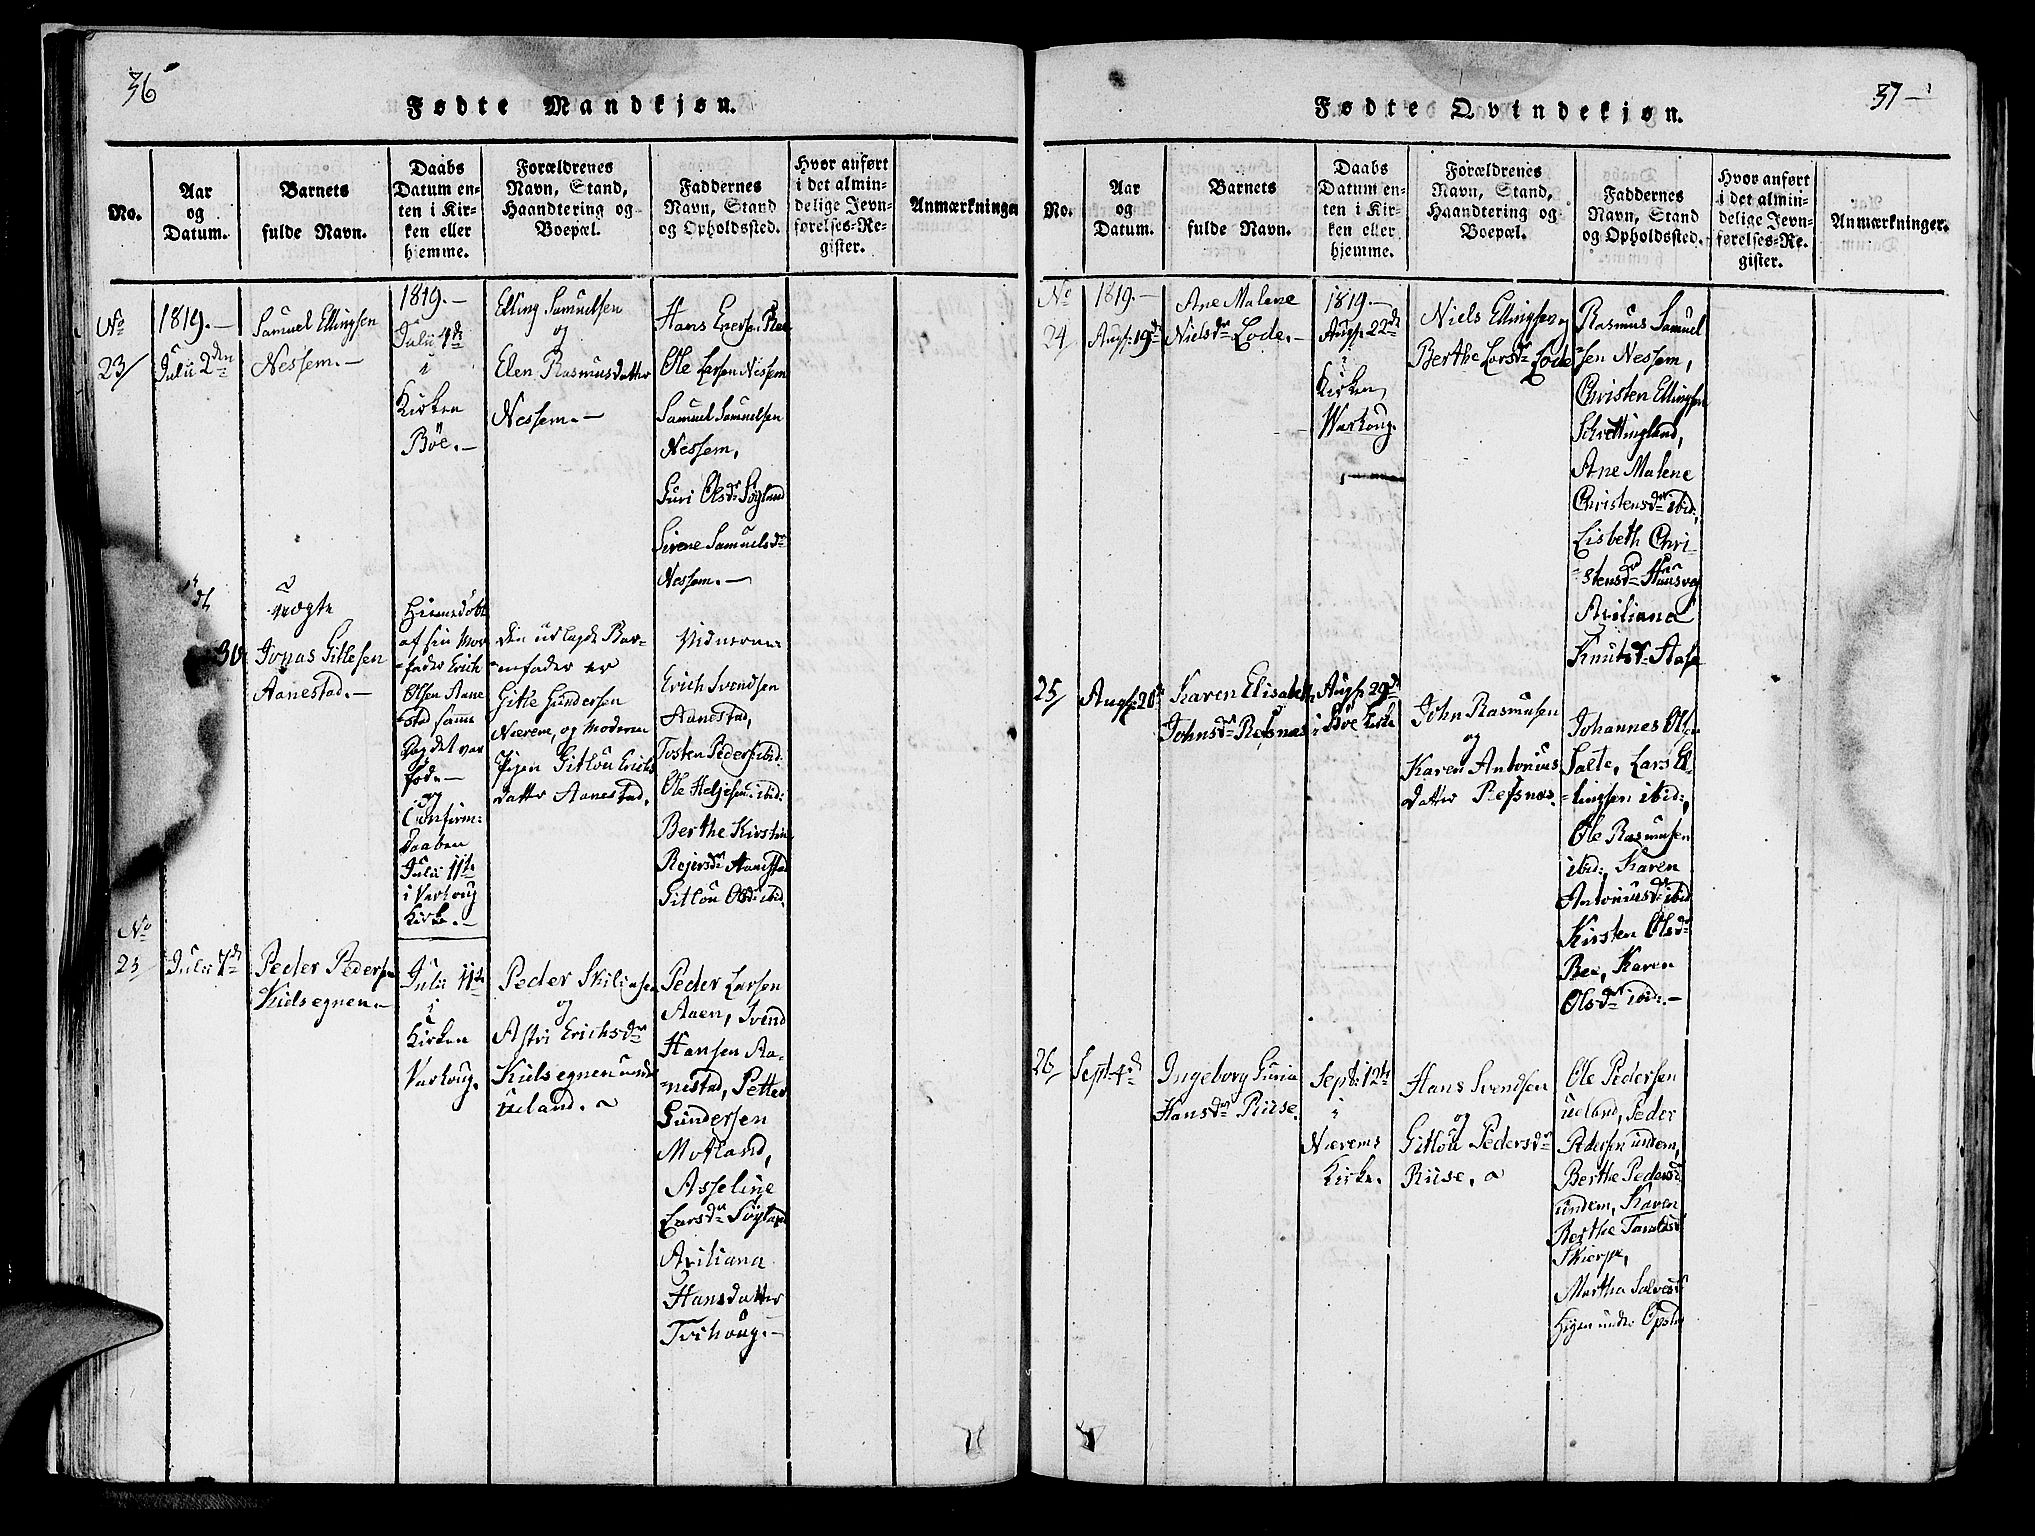 36
Fødte Mandkjøn.
No.
Aar
og
Datum.
Barnets
fulde Navn.
Daabs
Datum en-
ten i Kir-
ken eller
hjemme.
Forældrenes
Navn, Stand,
Haandtering og
Boepæl.
Faddernes
Navn, Stand
og Opholdssted.
Hvor anført
i det almin-
delige Jevn-
førelses-Re-
gister.
Anmærkninger
No
23/
1819.-
Julii 2den
Samuel Ellingsen
Nessem.-
1819.-
Julii 4de
i
Kirken
Böe.-
Elling Samuelsen
og
Elen Rasmusdatter
Nessem.-
Hans Enersen
Ole Larsen Nessem
Samuel Samuelsen
Nessem,
Guri Olsdr Söyland
Sirene Samuelsdr
Nessem.-
30
uægte
Jonas Gitlesen
Aanestad.-
Hiemedöbt
af sin Mor
-fader Erich
Olsen Aane
-stad samme
Dag det var
föd.-
og
Confirm:
Daaben
Julii 11te
i Varhoug
Kirke.-
Den udlagde Bar-
-nefader er
Gitle Gundersen
Nærem, og Moderen
Pigen Gitlou Erichs
Datter Aanestad.
Vidnerne
Erich Svendsen
Aanestad,
Tosten Peders: ibid:
Ole Heljesen: ibid:
Berthe Kirstine
Rejersdr Aanestad
Gitlou Olsdr ibid:
No
25
Julii 7de
Peder Pedersen
Kidsegnen.-
Julii 11te
i
Kirken
Varhoug.
Peder
og
Astri Erichsdr
Kidsegnen under
ueland.
Peder Larsen
Aaen, Svend
Hansen Aa-
-nestad, Petter
Gundersen
Motland,
Asseline
Larsdr Söyland
Axiliana
Hansdatter
Tvihoug.-
37-
Fødte Qvindekjøn.
No.
Aar
og
Datum.
Barnets
fulde Navn.
Daabs
Datum en-
ten i Kir-
ken eller
hjemme.
Forældrenes
Navn, Stand,
Haandtering og
Boepæl.
Faddernes
Navn, Stand
og Opholdssted.
Hvor anført
i det almin-
delige Jevn-
førelses-Re-
gister.
Anmærkninger.
No
24
1819.-
Augs: 19de
Ane Malene
Nielsdr Lode.-
1819.-
Augs: 22de
i
Kirken
Warhoug.
Niels Ellingsen og
Berthe Larsdr Lode
Rasmus Samuel
-sen Nessem,
Christen Ellingsen
Skrettingland,
Ane Malene
Christensdr ibid:,
Lisbeth Chri-
-stensdr
Axiliana
Knutsdr
25/
Augs: 26de
Karen Elisabeth
Johnsdr Refsnes
Augs: 29de
i Böe Kirke
John Rasmusen
og
Karen Antonius
Datter Refsnes.
Johannes Olsen
Salte, Lars El-
-lingsen ibid:,
Ole Rasmusen
ibid:, Karen
Antoniusdr ibid
Kirsten Olsdr
Bee, Karen
Olsdr ibid:.-
26/
Sept: 4de
Ingeborg Guria
Hansdr Riise.
Sept: 12te
i
Nærems
Kirke.
Hans Svendsen
og
Gitlou Pedersdr
Riise.
Ole Pedersen
ueland, Peder
Pedersen undem,
Berthe Pedersd
undem, Karen
Berthe
Skierpe,
Martha Salvesd
under Opstad